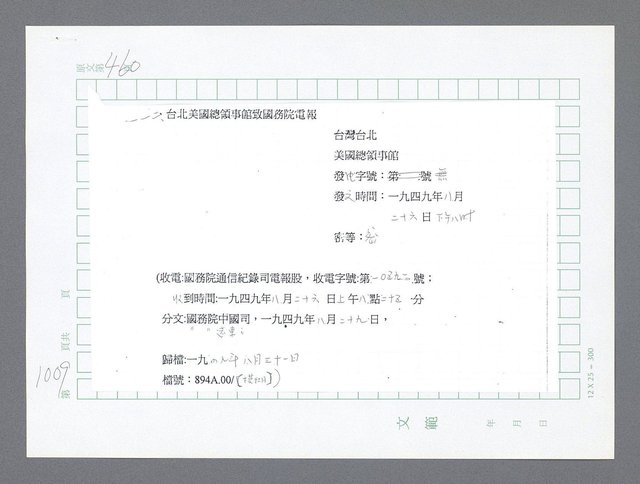 原文第 460
台北美國總領事館致國務院電報
台灣台北
美國總領事館
發電字號：第 號 無
發文時間：一九四九年八月
二十六日 下午八時
密等：密
(收電:國務院通信紀錄司電報股，收電字號:第 號；
收到時間:一九四九年八月二十六日上午八點二十五分
分文：國務院中國司，一九四九年八月二十九日，
" " 遠東；
歸檔:一九四九年八月三十一日
檔號：894A.00/
第 1009 頁共 頁
文範 年 月 日
12 X 25 = 300